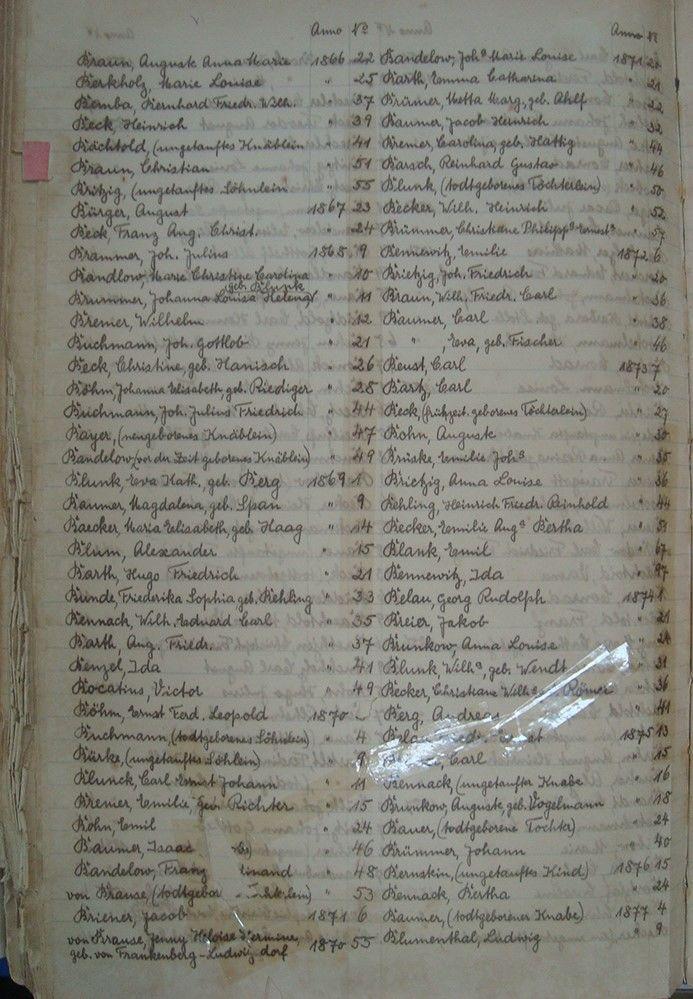 Anno No
Braun, August Anna Marie 1866 22
Berkholz, Marie Louise " 25
Bemba, Bernhard Friedr. Wilh. " 37
Beck, Heinrich " 39
Bächtold, (ungetauftes Knäblein " 41
Braun, Christian " 51
Britzig, (ungetauftes Söhnlein " 55
Bürger, August 1867 23
Beck, Franz Aug. Christ. " 24
Brammer, Joh. Julius 1868 9
Bandlow, Marie Christine Carolina " 10
geb. Blunk
Brummer, Johanna Louisa Helena " 11
Bremer, Wilhelm " 12
Buchmann, Joh. Gottlob " 21
Beck, Christine, geb. Hanisch " 26
Böhm, Johanna Elisabeth, geb. Riediger " 28
Buchmann, Joh. Julius Friedrich " 44
Bayer, (neugeborenes Knäblein) " 47
Bandelow (vor der Zeit geborenes Knäblein) " 49
Blunk, Eva Kath., geb. Berg 1869 1
Baumer, Magdalena, geb. Span " 9
Baecker, Maria Elisabeth, geb. Haag " 14
Blum, Alexander " 15
Barth, Hugo Friedrich " 21
Bunde, Friederika Sophia geb. Behling " 33
Bennack, Wilh. Eduard Carl " 35
Barth, Aug. Friedr. " 37
Benzel, Ida " 41
Bocatius, Victor " 49
Böhm, Ernst Ferd. Leopold 1870
Buchmann, (todtgeborenes Söhnlein) " 4
Bürke, (ungetauftes Söhlein) " 9
Blunck, Carl Ernst Johann " 11
Bremer, Emilie, geb. Richter " 15
Bohn, Emil " 24
Baumer, Isaac " 46
Bandelow, Franz " 48
von Krause, (todtgebor " 53
Briener, Jacob 1871 6
von Krause, Jenny Heloise Hermine, 1870 55
geb. von Frankenberg-Ludwigsdorf
Anno No
Bandelow, Joha Marie Louise 1871 20
Barth, Emma Catharina " 21
Brümer, Metta Marg., geb. Ahlf " 22
Baumer, Jacob Heinrich " 32
Bremer, Carolina, geb. Hattig " 44
Barsch, Reinhard Gustav " 46
Blunk, (todtgeborenes Töchterlein) " 50
Becker, Wilh. Heinrich " 52
Brümmer, Christiane Philippa Ernesta " 57
Bennewitz, Emilie 1872 6
Brietzig, Joh. Friedrich " 20
Braun, Wilh. Friedr. Carl " 36
Baumer, Carl " 38
" , Eva, geb. Fischer " 46
Beust, Carl 1873 7
Bartz, Carl " 20
Beck, (frühzeit. geborenes Töchterlein) " 27
Bohn, Auguste " 30
Brüske, Emilie Joha " 35
Brietzig, Anna Louise " 36
Behling, Heinrich Friedr. Reinhold " 44
Becker, Emilie Auga Bertha " 51
Blank, Emil " 67
Bennewitz, Ida " 97
Belau, Georg Rudolph 1874 1
Breier, Jakob " 21
Brunkow, Anna Louise " 24
Blunk, Wilha, geb. Wendt " 31
Becker, Christiane Wilha Römer " 36
Berg, Andreas " 41
1875 13
Carl " 15
Bennack, (ungetaufter Knabe " 16
Brunkow, Auguste, geb. Vogelmann " 18
Bauer, (todtgeborene Tochter) " 24
Brümmer, Johann " 40
Bernstein, (ungetauftes Kind) 1876 15
Bennack, Bertha " 24
Baumer, (todtgeborener Knabe) 1877 4
Blumenthal, Ludwig " 9